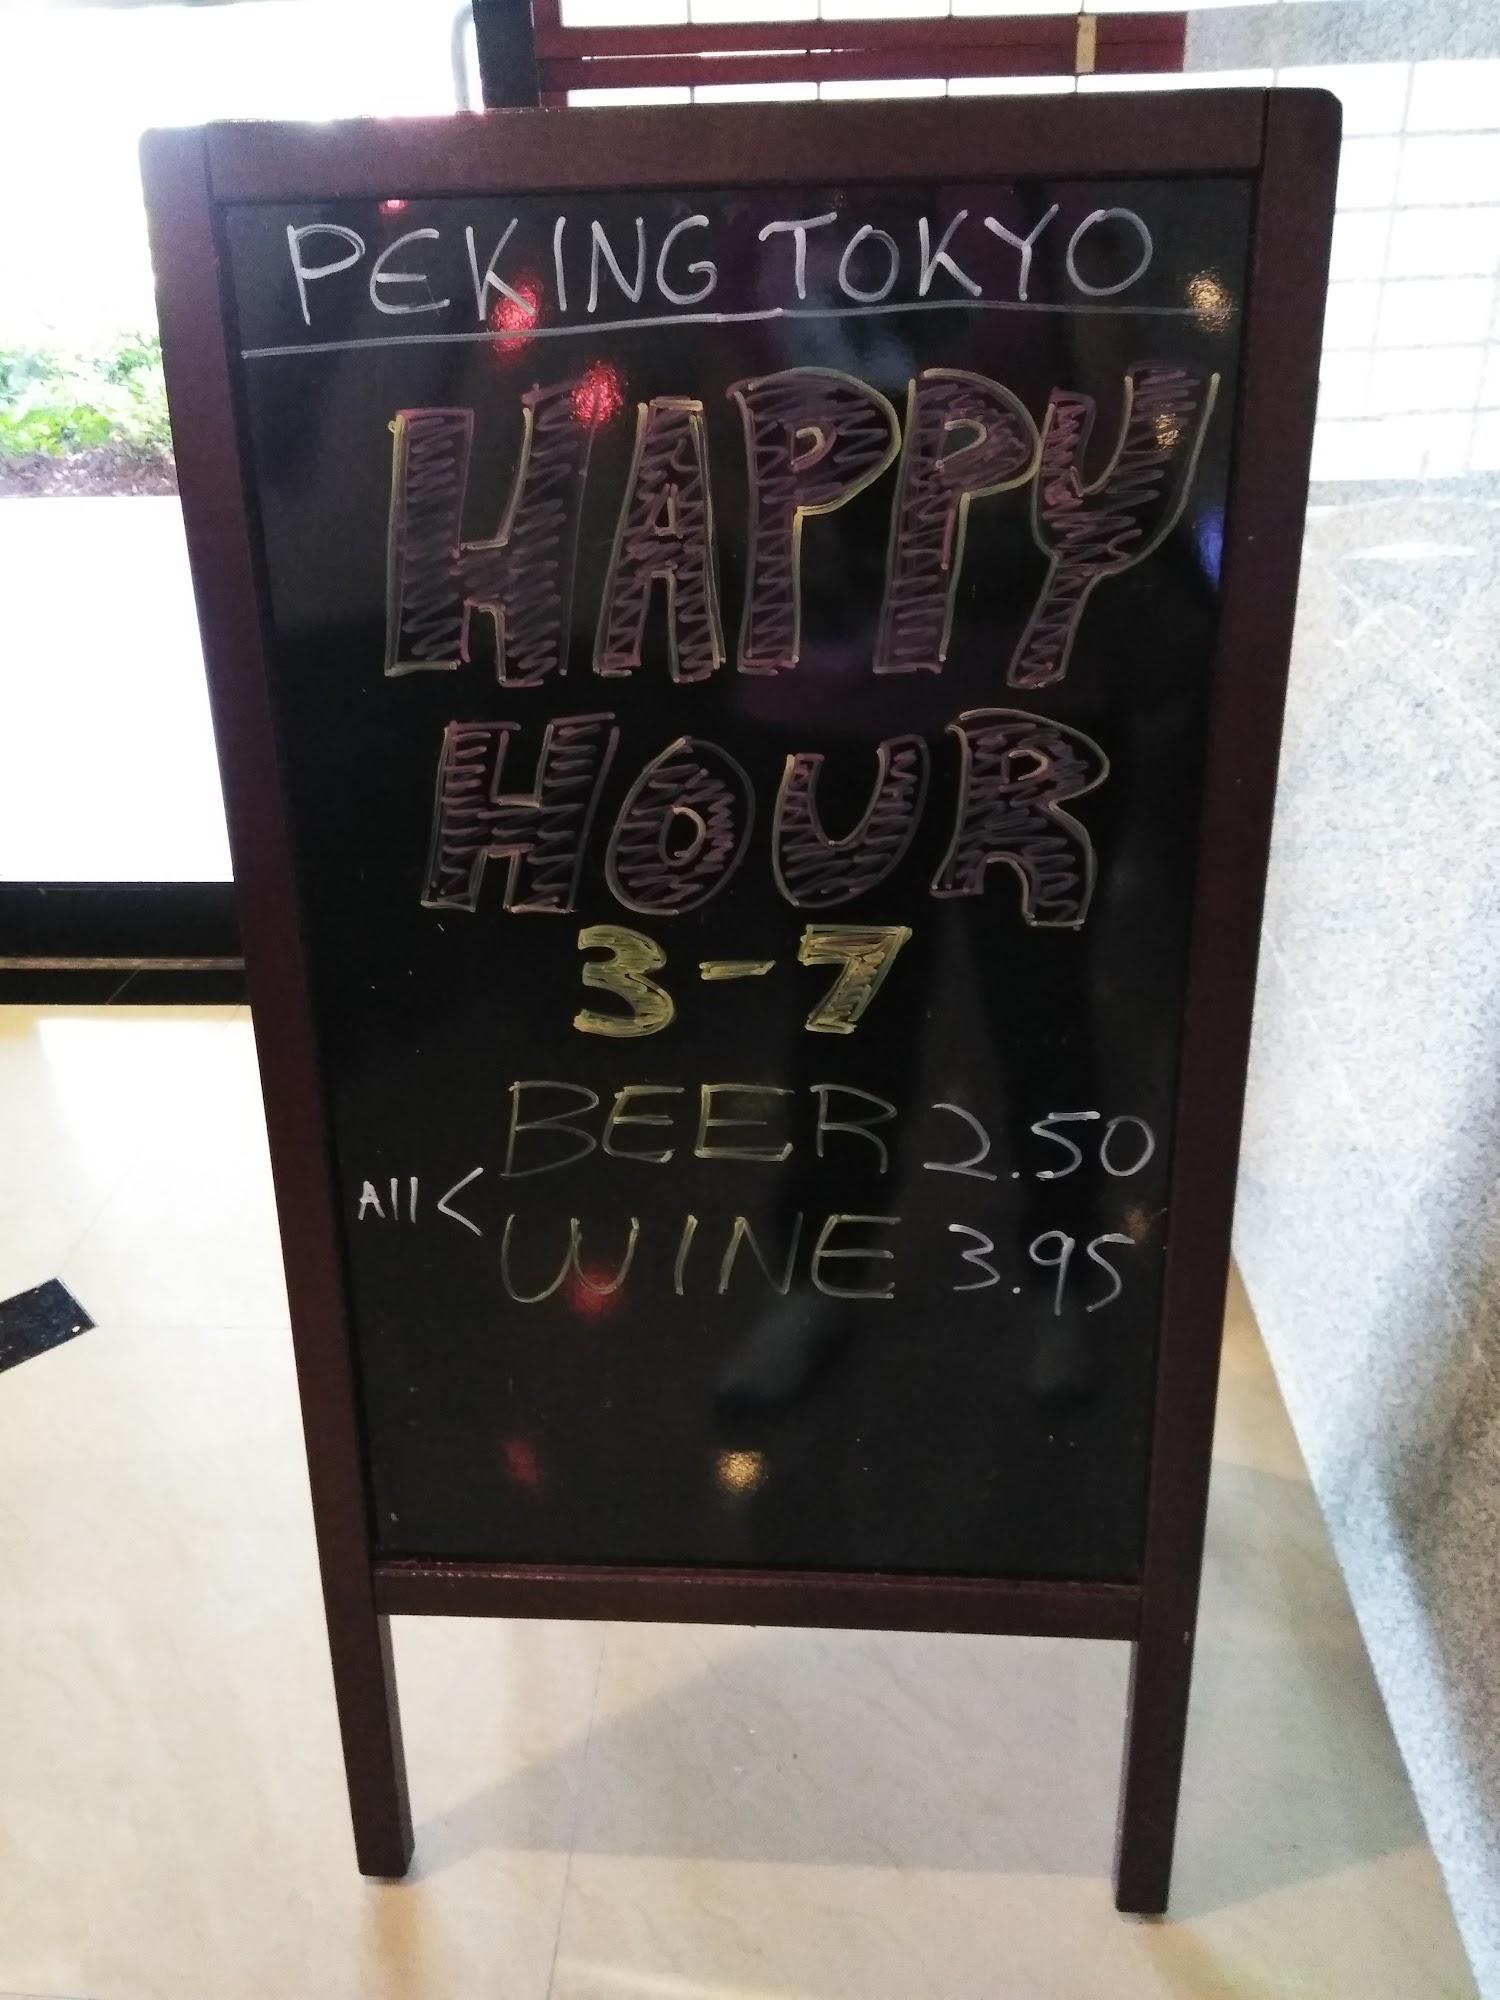 PEKING TOKYO
HAPPY
HOUR
3-7
BEER 2.50
All <
WINE 3.95